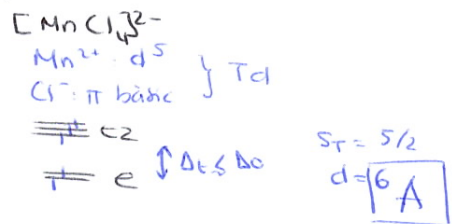 [MnCl4]2-
Mn2+: d5
Cl-: π bàsic } Td
t2
e ↕ Δt ≤ Δo
ST = 5/2
d = 6A